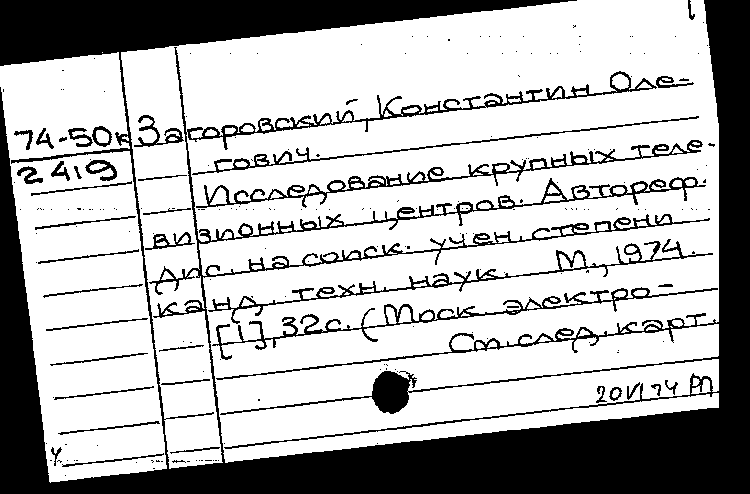 74-50к Загоровский, Константин Оле-
249 гович.
Исследование крупных теле-
визионных центров. Автореф.
дис. на соиск. учен. степени
канд. техн. наук. М., 1974.
[1], 32с. (Моск. электро-
См. след. карт.